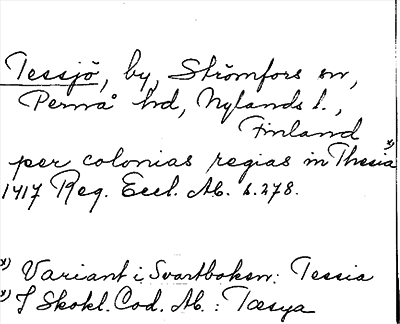 Tessjö, by, Strömfors sn,
Pernå hd, Nylands l.,
Finland
per colonias regias in Thesia x)
1417 Reg. Eccl. Ab. s. 278.
x) Variant i Svartboken: Tessia
x) I Skokl. Cod. Ab.: Tæsya